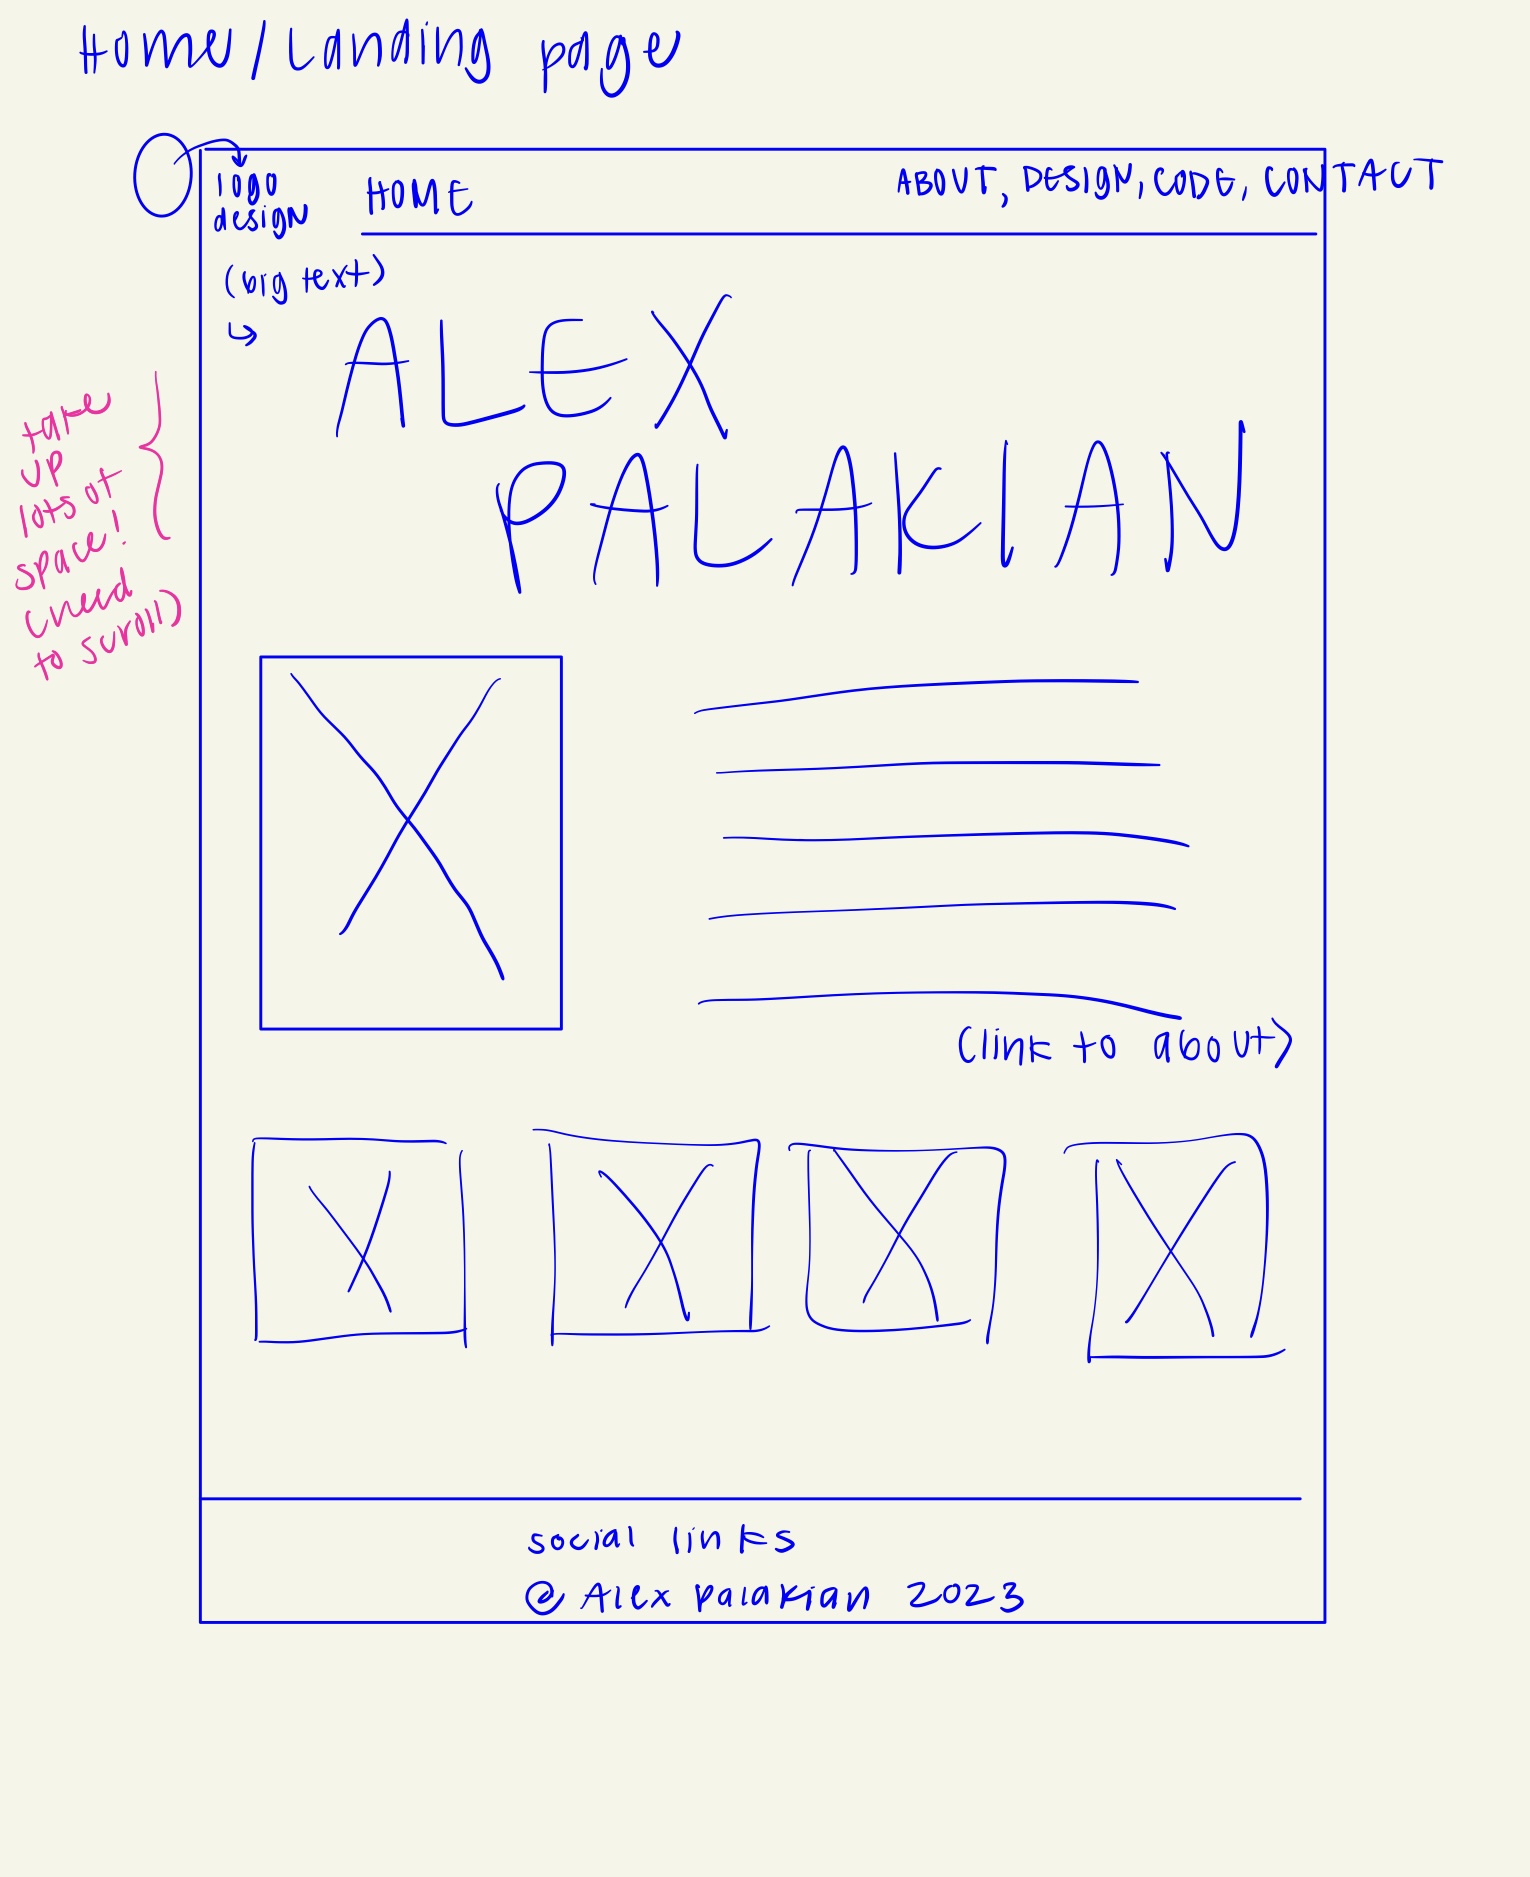 Home/Landing page
logo
design
HOME
ABOUT, DESIGN, CODE, CONTACT
(big text)
ALEX
PALAKIAN
take
up
lots of
space!
(need
to scroll)
(link to about)
social links
@ Alex Palakian 2023